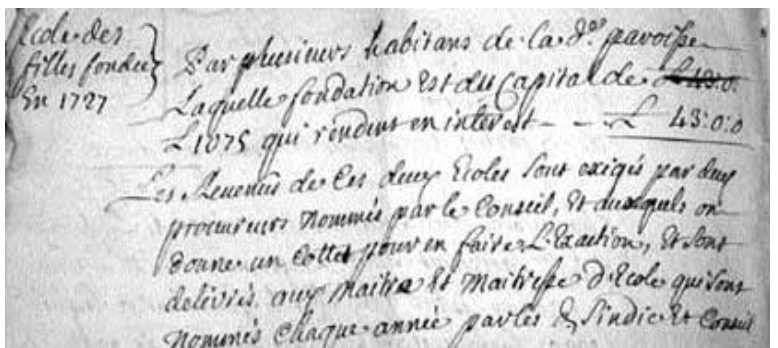 Ecole des
filles fondée
En 1727
Par plusieurs habitans de la de. paroisse
Laquelle fondation Est du Capital de L 43:0:
L 1075 qui rendent en interest - - L 43:0:0
Les Revenus de Ces deux Ecoles sont exigés par deux
procureurs nommés par le Conseil, Et auxquels on
donne un Cottet pour en faire L'Exaction, Et sont
delivrés aux Maitre Et Maitresse d'Ecole qui sont
nommés Chaque année par les Sindic Et Conseil